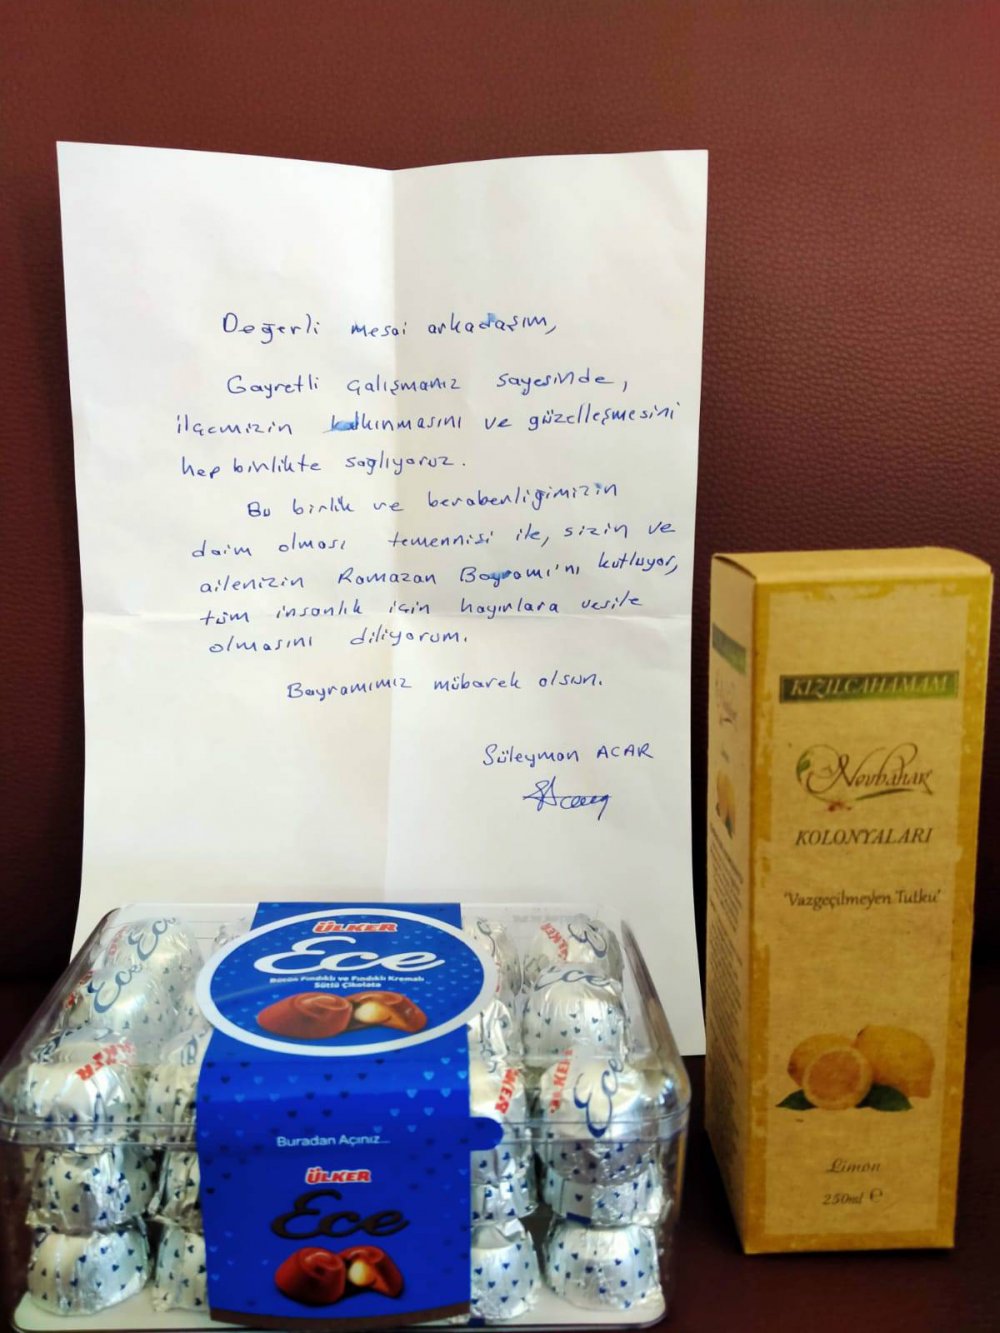 Değerli mesai arkadaşım,
Gayretli çalışmanız sayesinde,
ilçemizin kalkınmasını ve güzelleşmesini
hep birlikte sağlıyoruz.
Bu birlik ve beraberliğimizin
daim olması temennisi ile, sizin ve
ailenizin Ramazan Bayramı'nı kutluyor,
tüm insanlık için hayırlara vesile
olmasını diliyorum.
Bayramımız mübarek olsun.
Süleyman ACAR
ÜLKER
Ece
Bütün Fındıklı ve Fındıklı Kremalı
Sütlü Çikolata
Buradan Açınız...
ÜLKER
Ece
KIZILCAHAMAM
Nevbahar
KOLONYALARI
'Vazgeçilmeyen Tutku'
Limon
250ml e